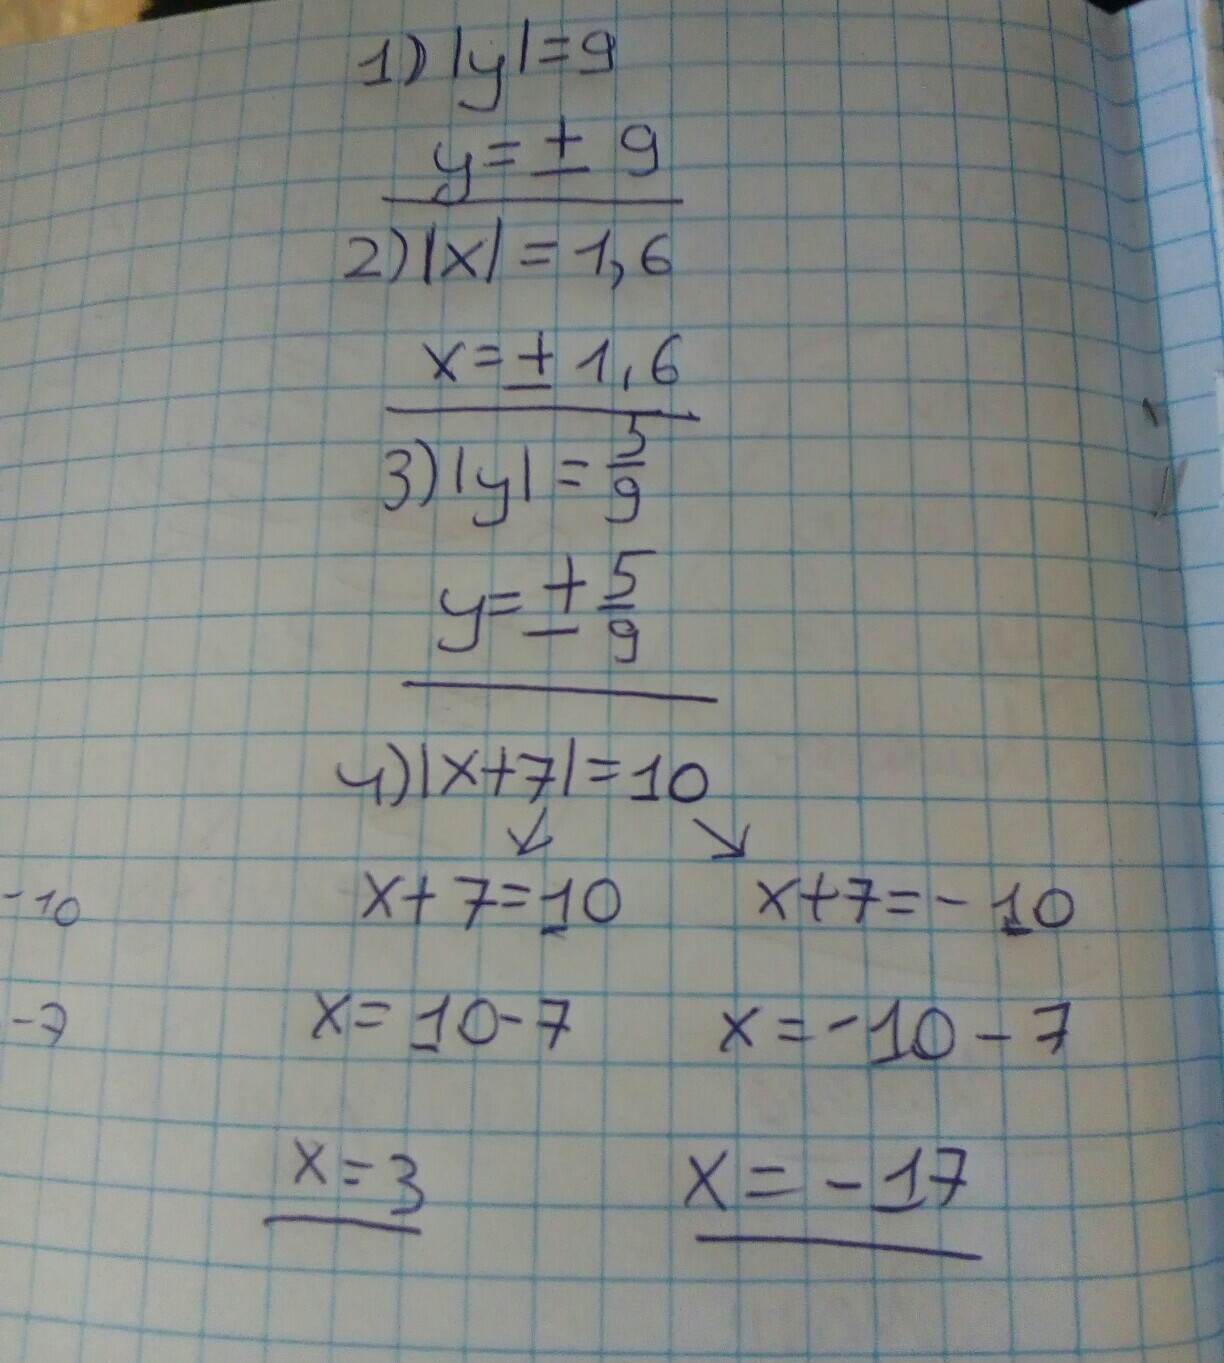 1) |y|=9
y=± 9
2) |x| = 1,6
x=± 1,6
3) |y| = 5/9
y=± 5/9
4) |x+7|=10
↙ ↘
-10 x+7=10 x+7=-10
-7 x=10-7 x=-10-7
x=3 x=-17